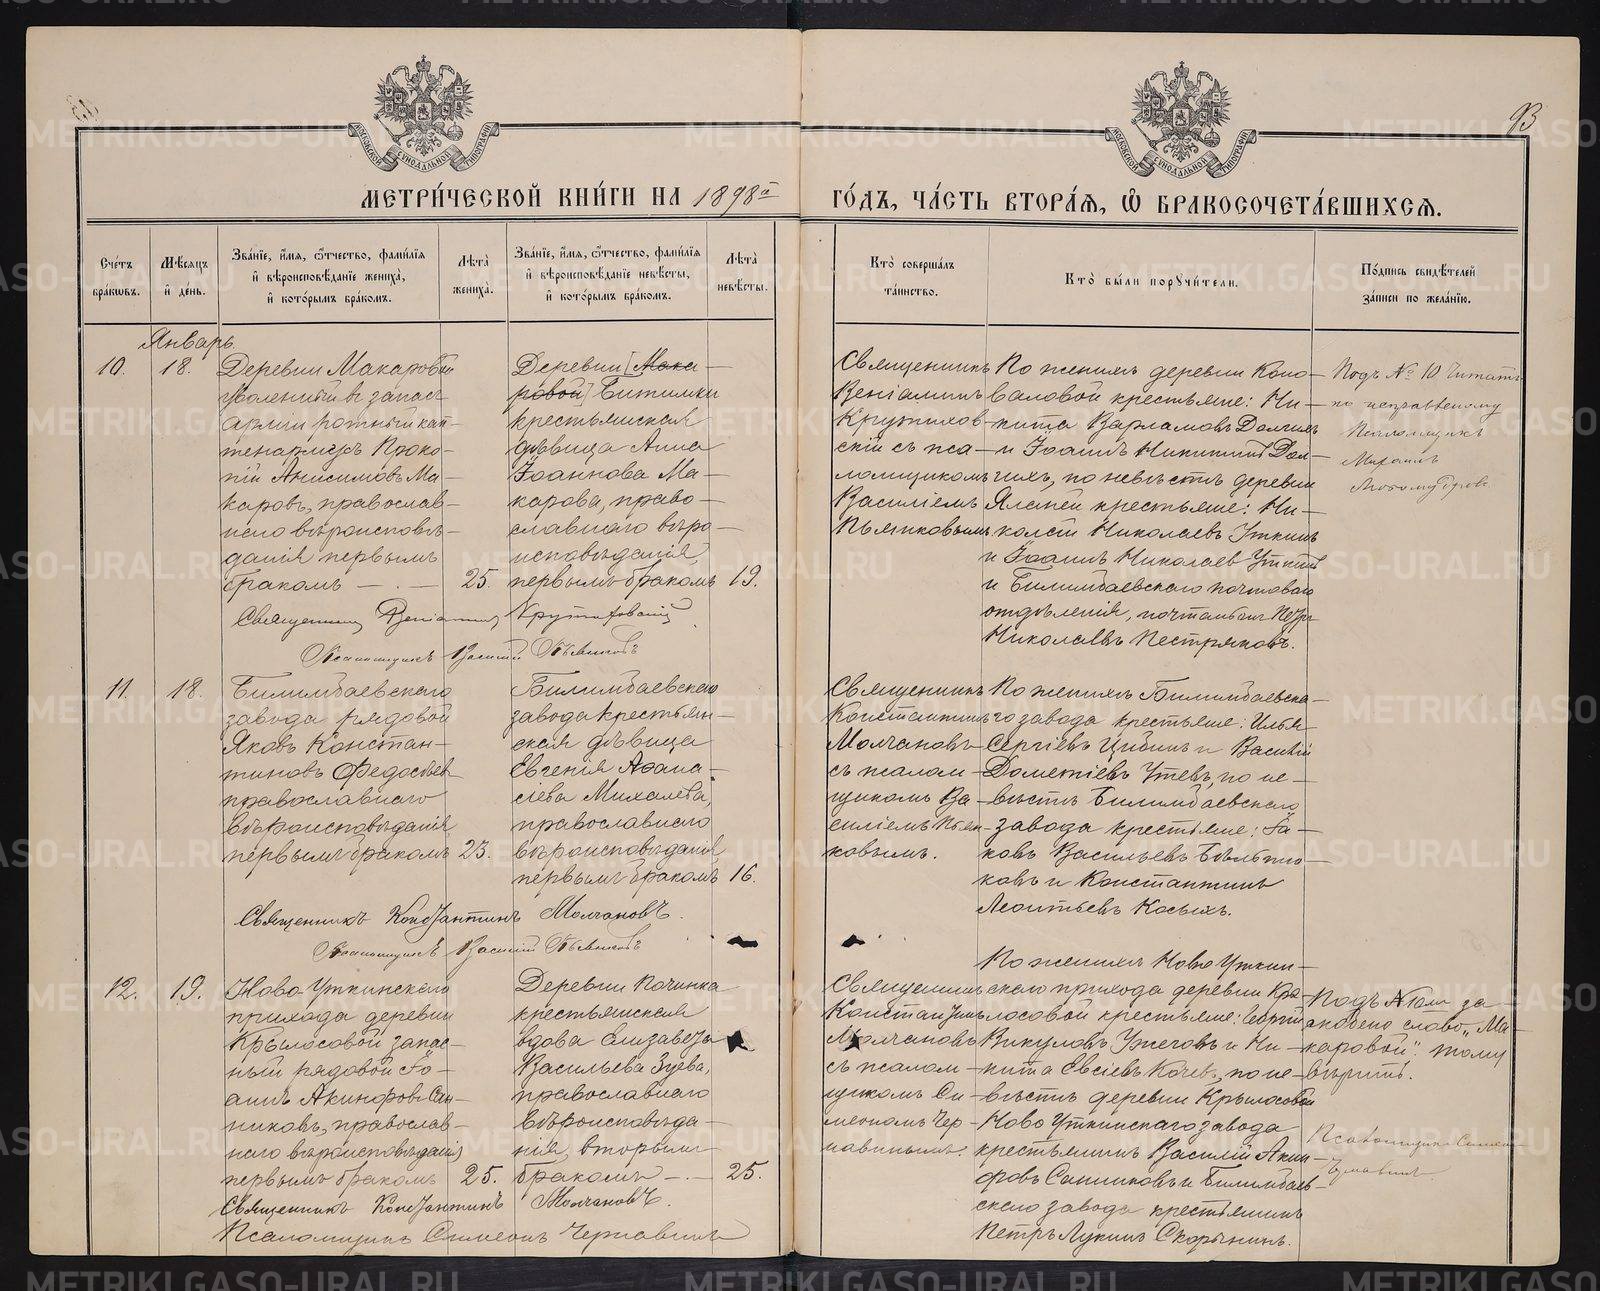 93
МЕТРИ́ЧЕСКОЙ КНИ́ГИ НА 1898й ГО́ДЪ, ЧА́СТЬ ВТОРА́Я, Ѡ БРАКОСОЧЕТА́ВШИХСЯ.
Сче́тъ бра́кѡвъ.
Мѣ́сяцъ и҆ де́нь.
Зва́нїе, и҆́мя, ѻ҆́тчество, фами́лїя
и҆ вѣроисповѣ́данїе жениха̀,
и҆ кото́рымъ бра́комъ.
Лѣта̀ жениха̀.
Зва́нїе, и҆́мя, ѻ҆́тчество, фами́лїя
и҆ вѣроисповѣ́данїе невѣ́сты,
и҆ кото́рымъ бра́комъ.
Лѣта̀ невѣ́сты.
Кто̀ соверша́лъ
та́инство.
Кто̀ бы́ли порꙋчи́тели.
По́дпись свидѣ́телей
за́писи по жела́нїю.
Январь.
10.
18.
Деревни Макаровой
уволенный въ запасъ
арміи ротный кап-
тенармусъ Проко-
пій Анисимовъ Ма-
каровъ, православ-
наго вѣроисповѣ-
данія первымъ
бракомъ — —
25.
Деревни [Мака-
ровой] Битимки
крестьянская
дѣвица Анна
Іоаннова Ма-
карова, право-
славнаго вѣро-
исповѣданія,
первымъ бракомъ
19.
Священникъ
Веніаминъ
Крутихов-
скій съ пса-
ломщикомъ
Василіемъ
Пьянковымъ
По женихѣ деревни Коно-
валовой крестьяне: Ни-
кита Варламовъ Долгихъ
и Іоаннъ Никитинъ Дол-
гихъ, по невѣстѣ деревни
крестьяне: Ни-
колай Николаевъ Уткинъ
и Іоаннъ Николаевъ Уткинъ
и Билимбаевскаго почтоваго
отдѣленія, почтальонъ Петръ
Николаевъ Пестряковъ.
Подъ № 10 читать
по исправленному
Псаломщикъ
Михаилъ
Священникъ Веніаминъ Крутиховскій
Псаломщикъ Василій Пьянковъ
11.
18.
Билимбаевскаго
завода рядовой
Яковъ Констан-
тиновъ Федосѣевъ
православнаго
вѣроисповѣданія,
первымъ бракомъ
23.
Билимбаевскаго
завода крестьян-
ская дѣвица
Евгенія Афана-
сіева Михалева,
православнаго
вѣроисповѣданія,
первымъ бракомъ
16.
Священникъ
Константинъ
Молчановъ
съ псалом-
щикомъ Ва-
силіемъ Пьян-
ковымъ.
По женихѣ Билимбаевска-
го завода крестьяне: Илья
Сергіевъ Цибинъ и Василій
Дометіевъ Утевъ, по не-
вѣстѣ Билимбаевскаго
завода крестьяне: Іа-
ковъ Васильевъ
и Константинъ
Леонтьевъ Косыхъ.
Священникъ Константинъ Молчановъ.
Псаломщикъ Василій Пьянковъ
12.
19.
Ново-Уткинскаго
прихода деревни
Крылосовой запас-
ный рядовой Іо-
аннъ Акинфовъ Сан-
никовъ, православ-
наго вѣроисповѣданія,
первымъ бракомъ
25.
Деревни Починка
крестьянская
вдова Елизавета
Васильева Зуева,
православнаго
вѣроисповѣда-
нія, вторымъ
бракомъ —
25.
Священникъ
Константинъ
Молчановъ
съ псалом-
щикомъ Си-
меономъ Чер-
навинымъ.
По женихѣ Ново Уткин-
скаго прихода деревни Кры-
лосовой крестьяне: Георгій
Викуловъ Ужеговъ и Ни-
кита Евсіевъ Кочевъ, по не-
вѣстѣ деревни Крылосовой
Ново Уткинскаго завода
крестьянинъ Василій Акин-
фовъ Санниковъ и Билимбаев-
скаго завода крестьянинъ
Петръ Лукинъ Скорынинъ.
Подъ № 10м за-
скобено слово „Ма-
каровой". тому
вѣрить.
Псаломщикъ Симеонъ
Чернавинъ
Священникъ Константинъ Молчановъ.
Псаломщикъ Симеонъ Чернавинъ
METRIKI.GASO-URAL.RU